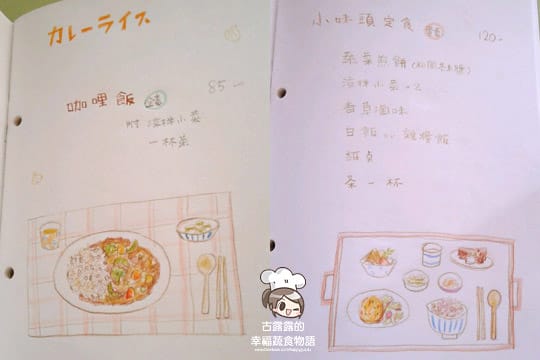 カレーライス
咖哩飯
85
附 涼拌小菜
一杯茶
小味頭定食
120
蔬菜煎餅
涼拌小菜×2
香草滷味
白飯 or 雜糧飯
茶一杯
古露露的
幸福蔬食物語